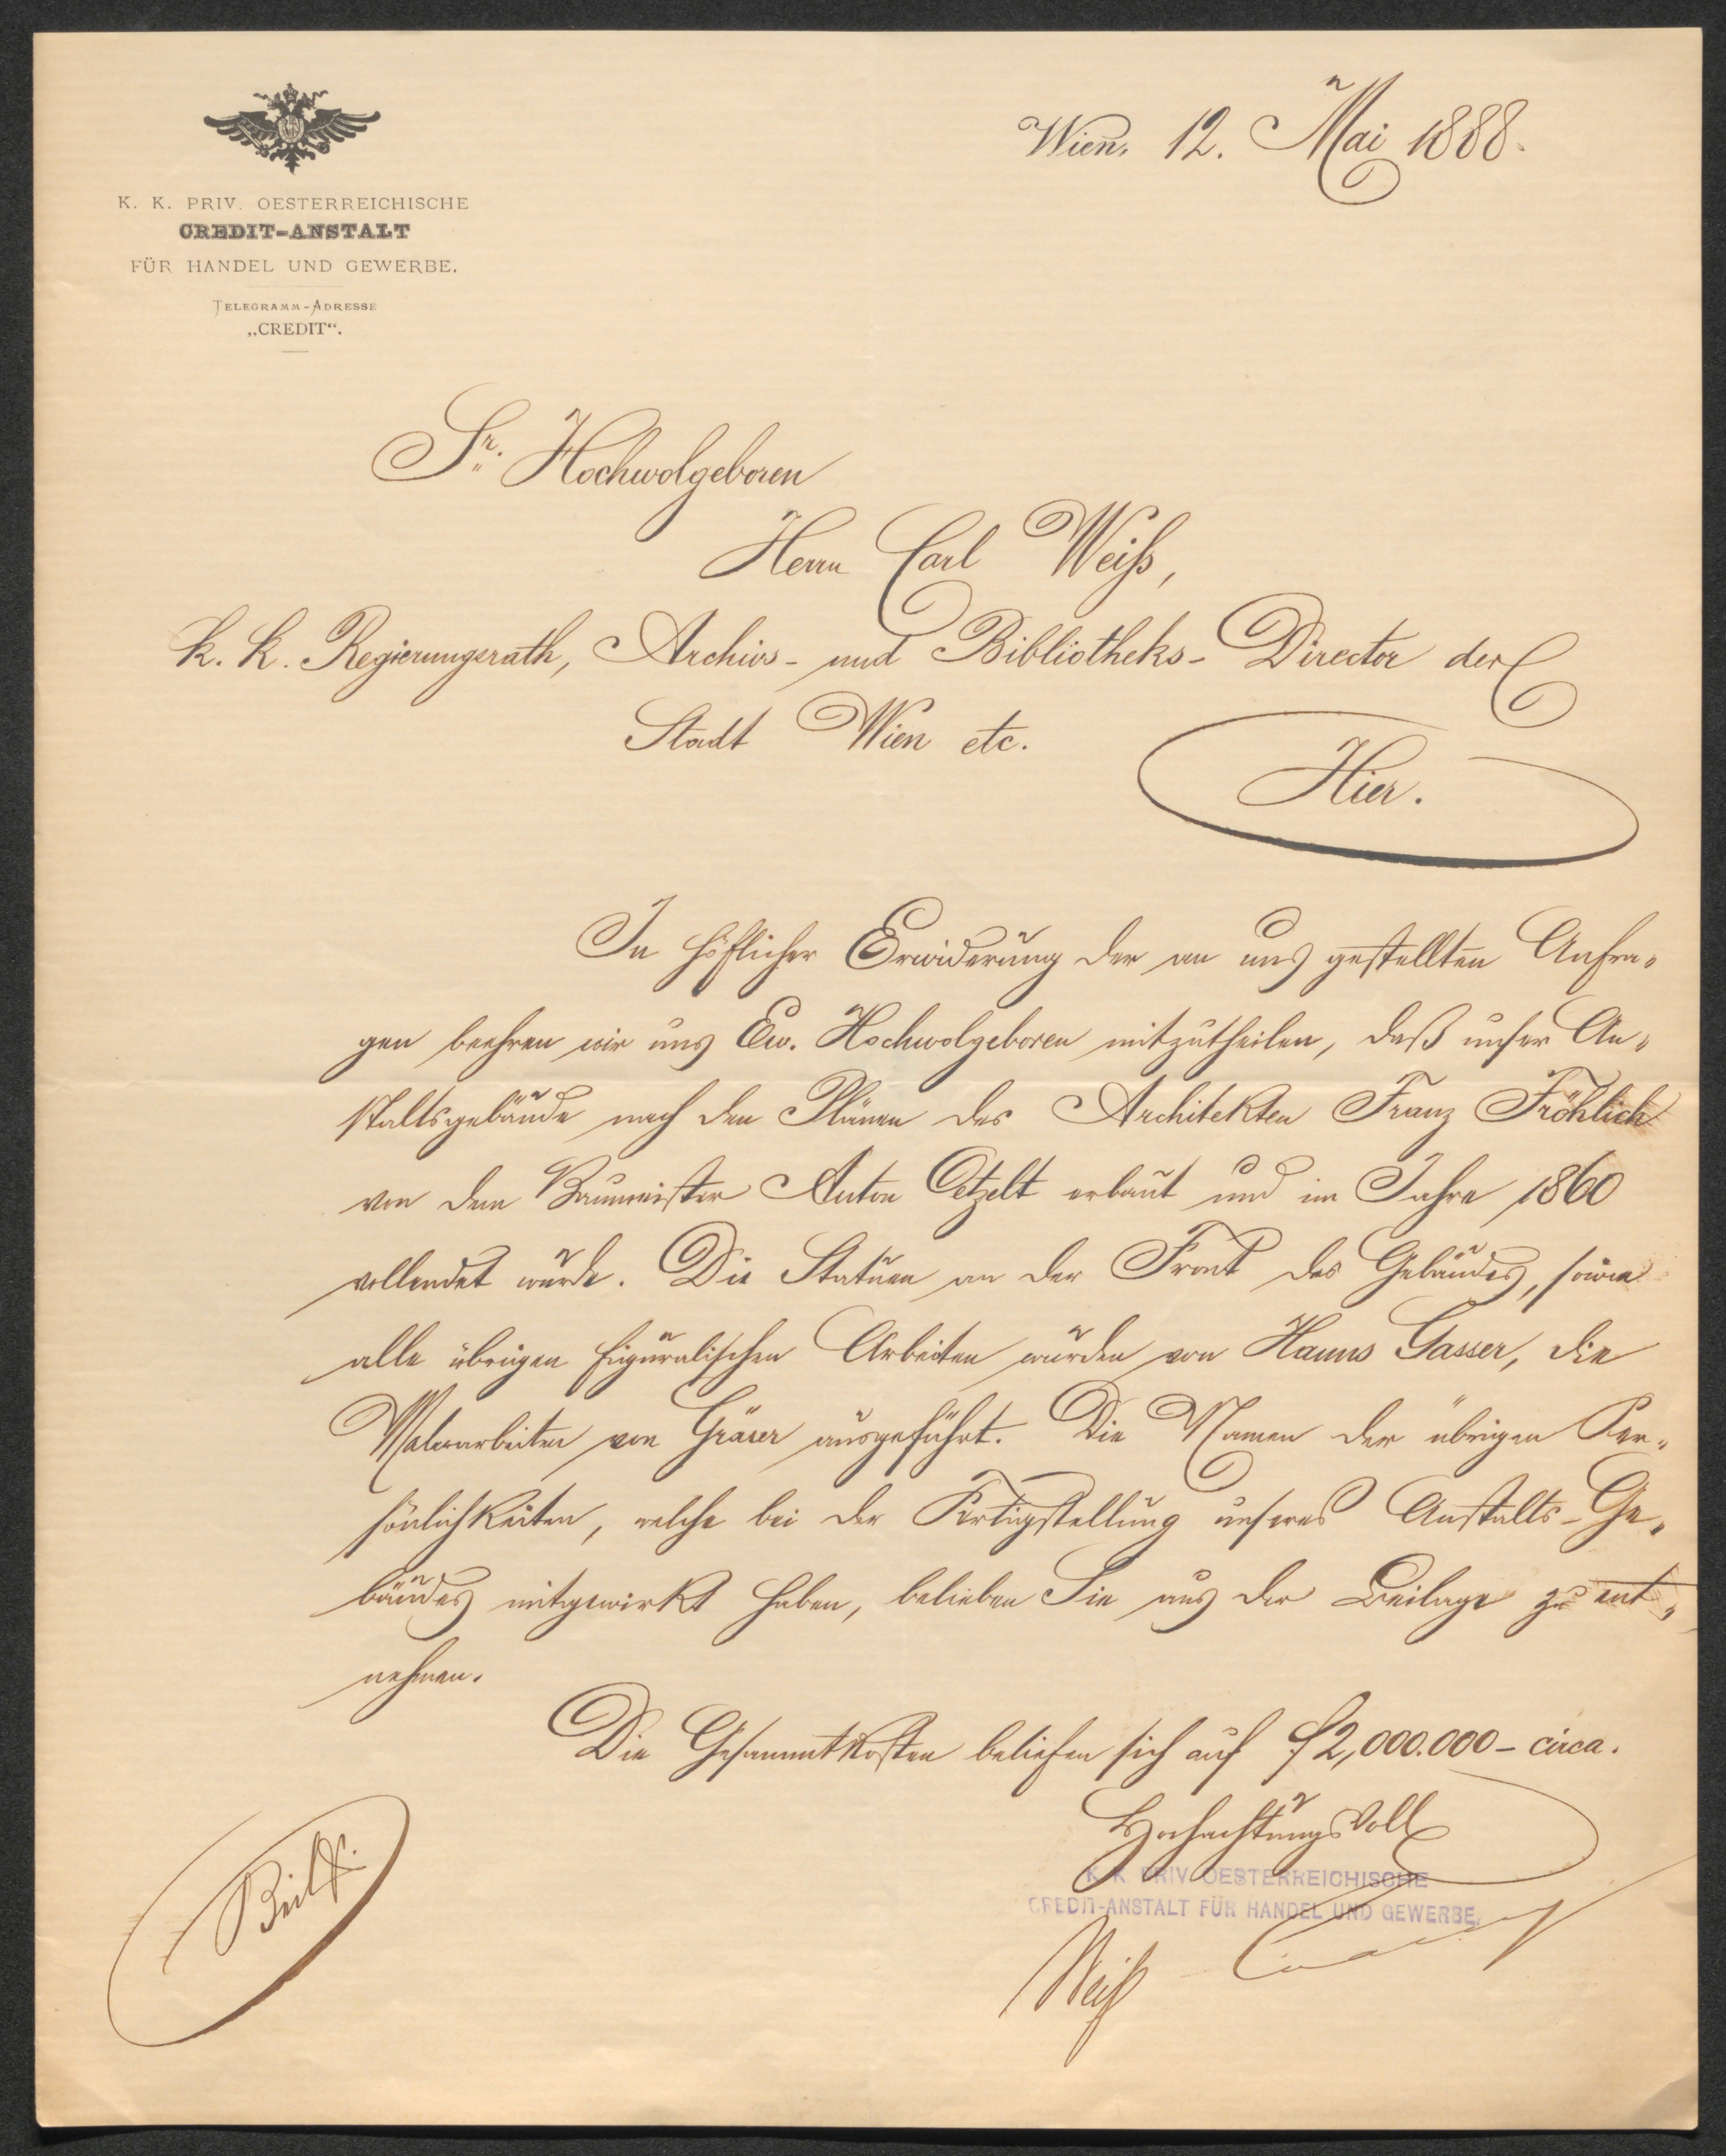 K. K. PRIV. OESTERREICHISCHE
CREDIT-ANSTALT
FÜR HANDEL UND GEWERBE.
TELEGRAMM-ADRESSE
„CREDIT“.
Wien, 12. Mai 1888.
Sr. Hochwolgeboren
Herrn Carl Weiß,
k. k. Regierungsrath, Archivs- und Bibliotheks-Director der
Stadt Wien etc.
Hier.
In höflicher Erwiderung der an uns gestellten Anfra-
gen beehren wir uns Ew. Hochwolgeboren mitzutheilen, daß unser An-
staltsgebäude nach den Plänen des Architekten Franz Fröhlich
von dem Baumeister Anton Oetzelt erbaut und im Jahre 1860
vollendet wurde. Die Statuen an der Front des Gebäudes, sowie
alle übrigen figuralischen Arbeiten wurden von Hanns Gasser, die
Malerarbeiten von Gräser ausgeführt. Die Namen der übrigen Per-
sönlichkeiten, welche bei der Fertigstellung unseres Anstalts-Ge-
bäudes mitgewirkt haben, belieben Sie aus der Beilage zu ent-
nehmen.
Die Gesammtkosten beliefen sich auf f 2,000.000 - circa.
Hochachtungsvoll
K. K. PRIV. OESTERREICHISCHE
CREDIT-ANSTALT FÜR HANDEL UND GEWERBE.
Weiß